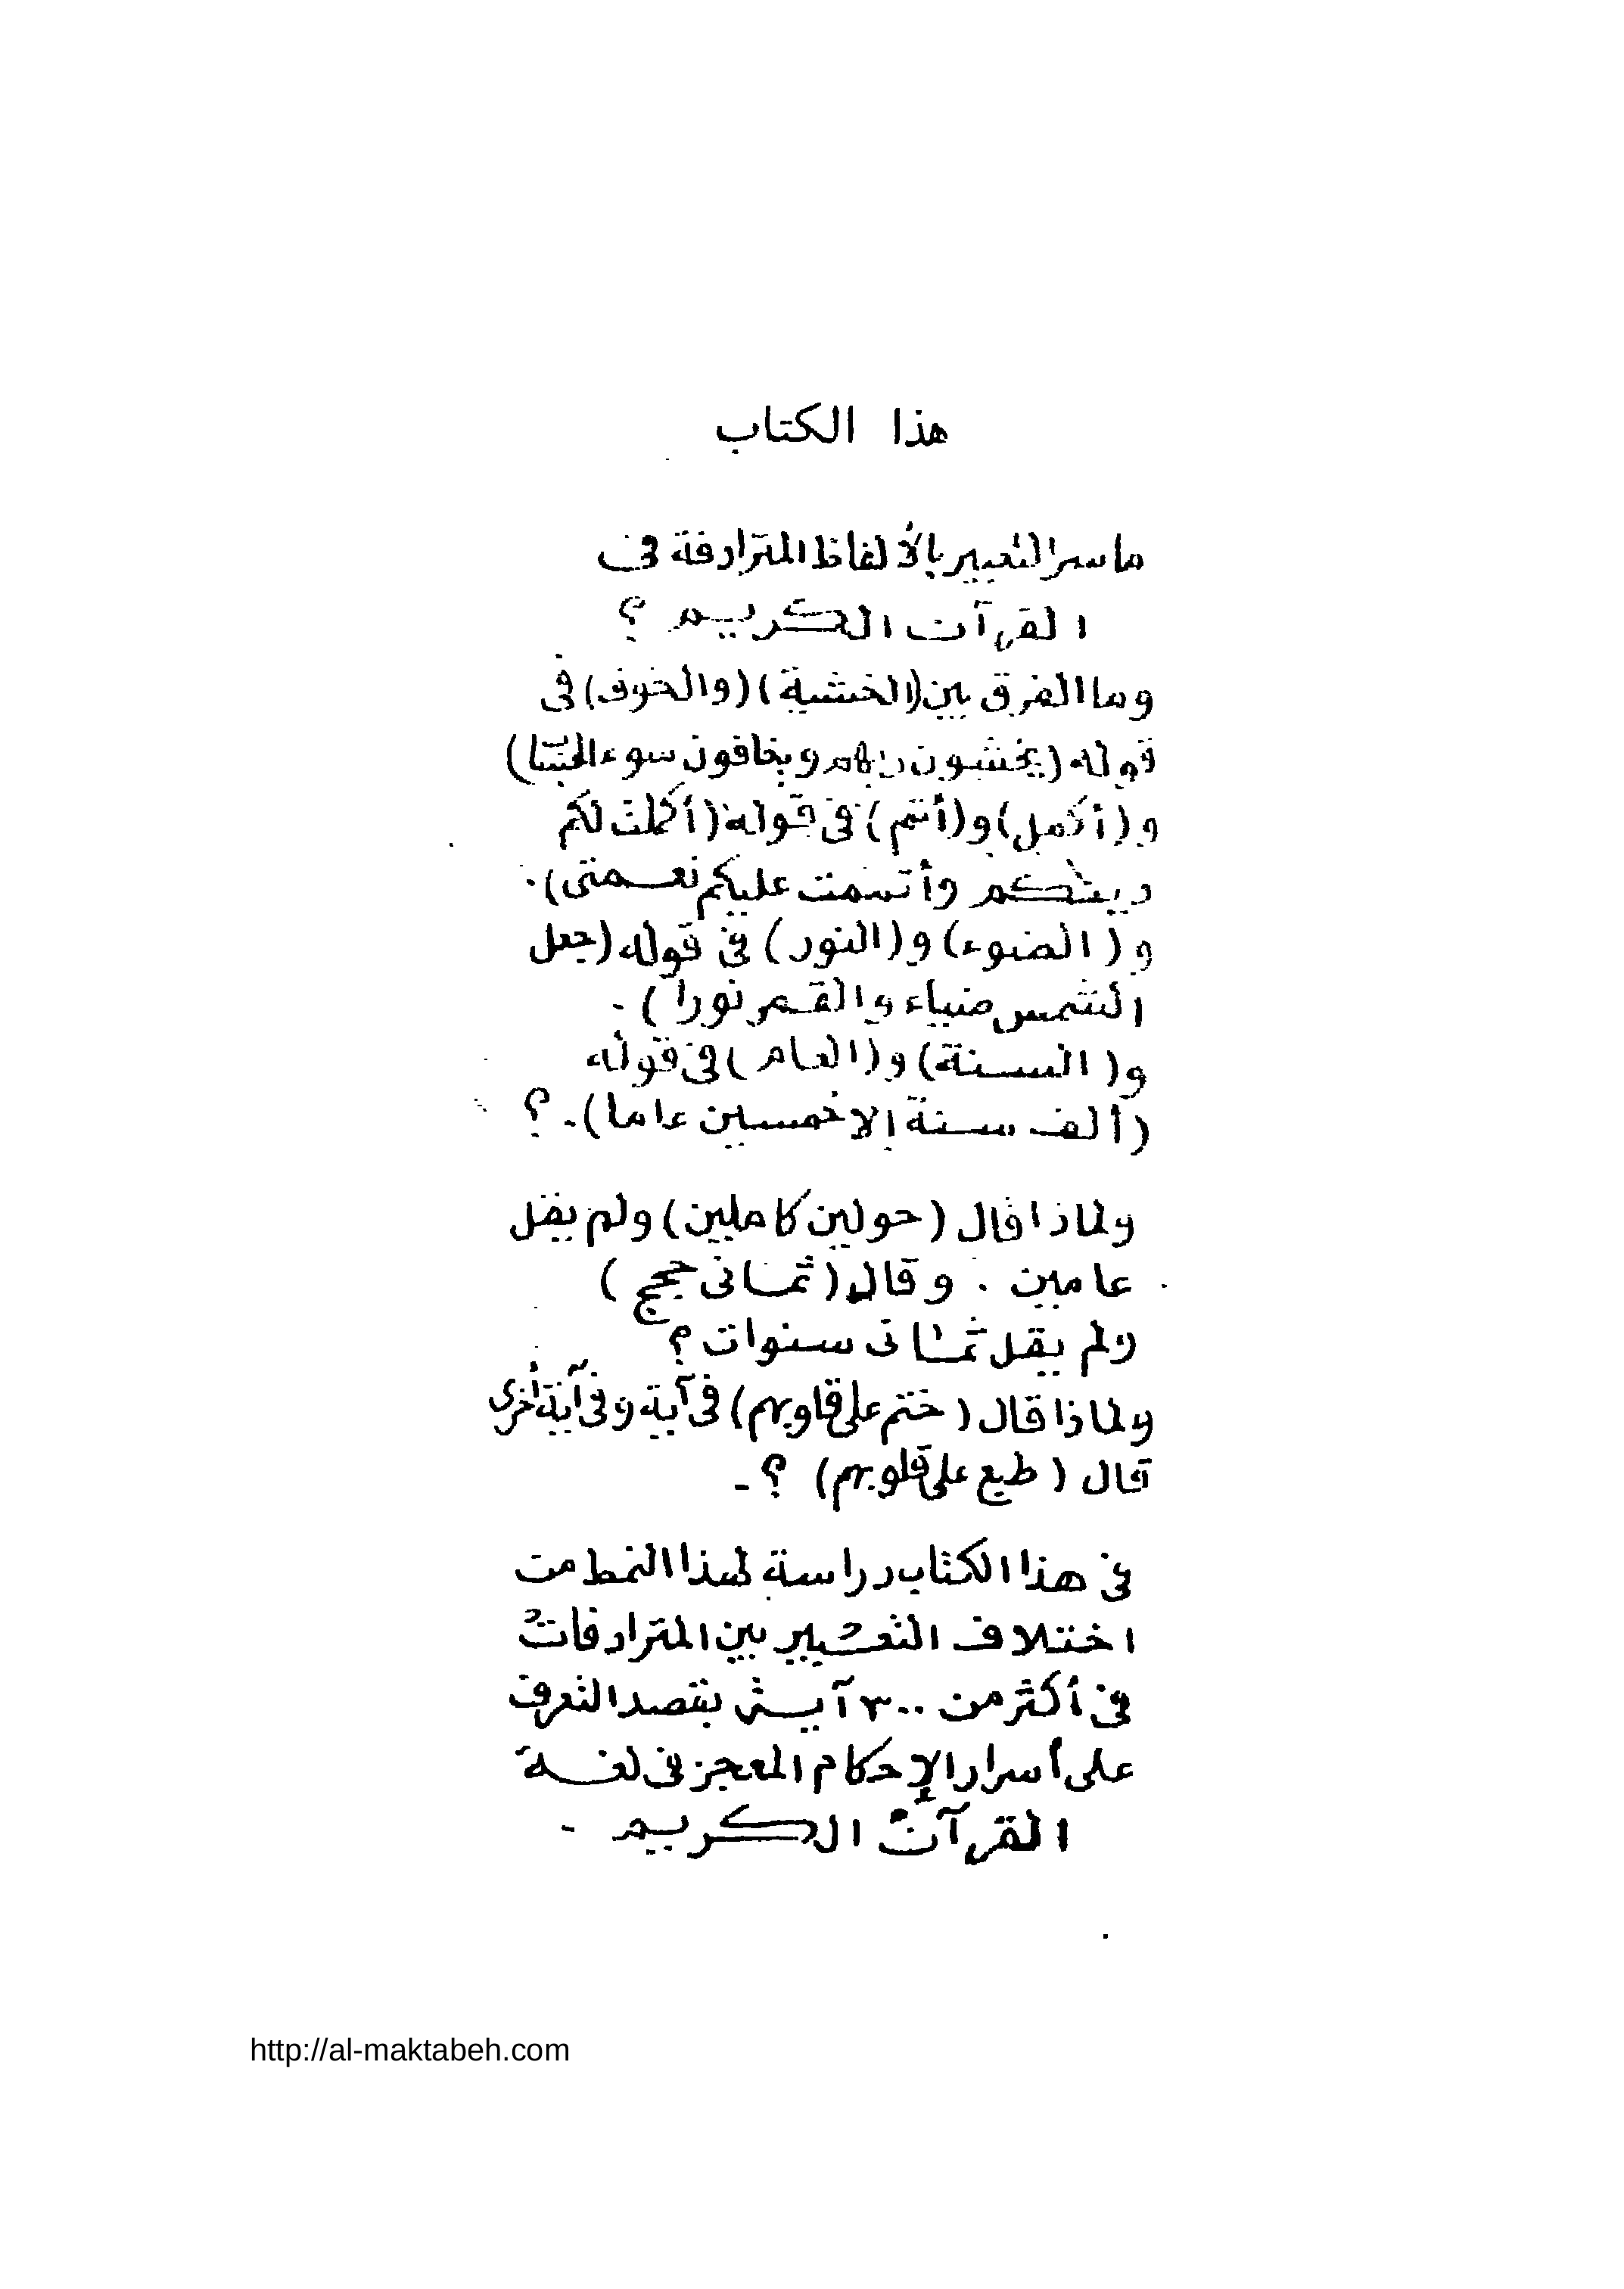 هذا الكتاب
ما سر التعبير بالألفاظ المترادفة فى
القرآن الكريم ؟
وما الفرق بين (الخشية) (والخوف) فى
قوله (يخشون ربهم ويخافون سوء الحساب)
و (أكمل) و (أتم) فى قوله (أكملت لكم
دينكم وأتممت عليكم نعمتى).
و (الضوء) و (النور) فى قوله (جعل
الشمس ضياء والقمر نورا) -
و (السنة) و (العام) فى قوله
(ألف سنة إلا خمسين عاما). ؟
ولماذا قال (حولين كاملين) ولم يقل
عامين . وقال (ثمانى حجج)
ولم يقل ثمانى سنوات ؟
ولماذا قال (ختم على قلوبهم) فى آية وفى آية أخرى
قال (طبع على قلوبهم) ؟ -
فى هذا الكتاب دراسة لهذا النمط من
اختلاف التعبير بين المترادفات
فى أكثر من ٣٠٠ آية بقصد التعرف
على أسرار الإحكام المعجز فى لغة
القرآن الكريم -
http://al-maktabeh.com